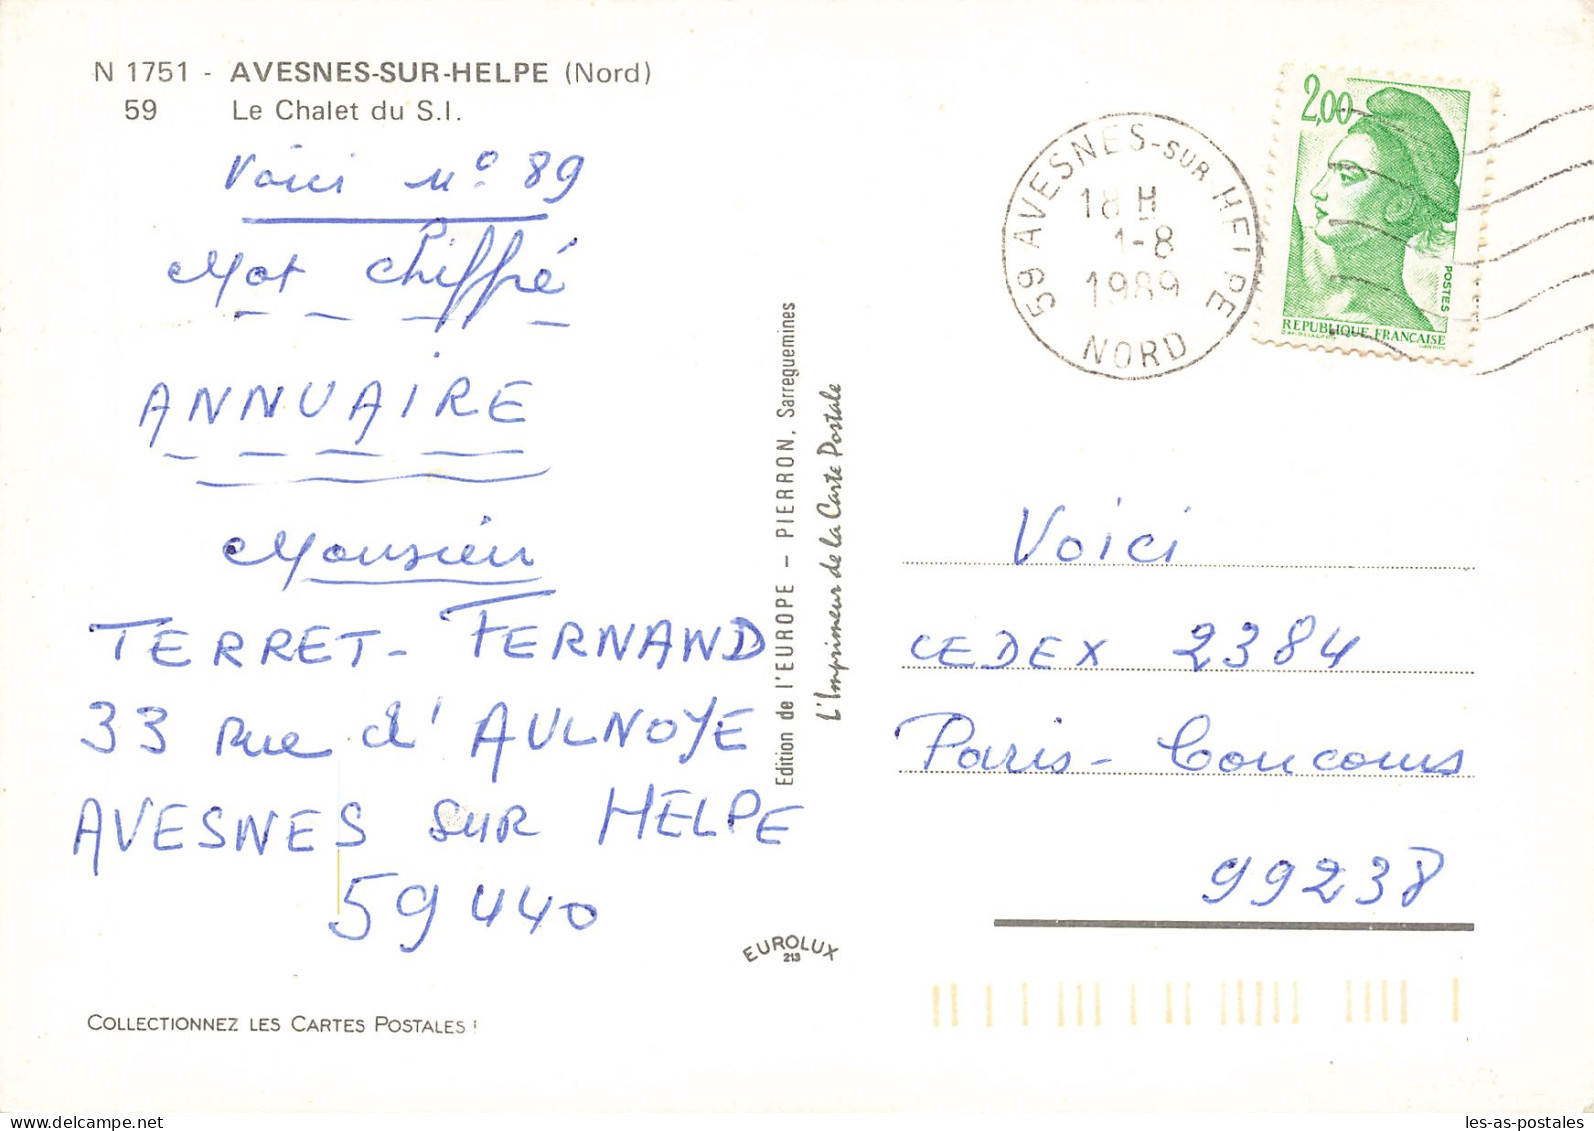 N 1751 - AVESNES-SUR-HELPE (Nord)
59 Le Chalet du S.I.
Voici n° 89
Mot chiffré
ANNUAIRE
Monsieur
TERRET - FERNAND
33 Rue d'AULNOYE
AVESNES SUR HELPE
59440
COLLECTIONNEZ LES CARTES POSTALES !
Edition de l'EUROPE – PIERRON, Sarreguemines
L'Imprimeur de la Carte Postale
EUROLUX
213
59 AVESNES-SUR HELPE
18 H
1-8
1989
NORD
2,00
POSTES
REPUBLIQUE FRANÇAISE
Voici
CEDEX 2384
Paris - Concours
99238
les-as-postales.com